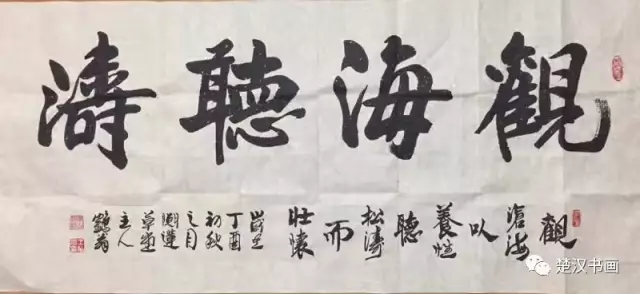 觀海聽濤
觀
滄海
以
養性
聽
松濤
而
壯懷
歲在
丁酉
初秋
之月
草堂
主人
楚汉书画